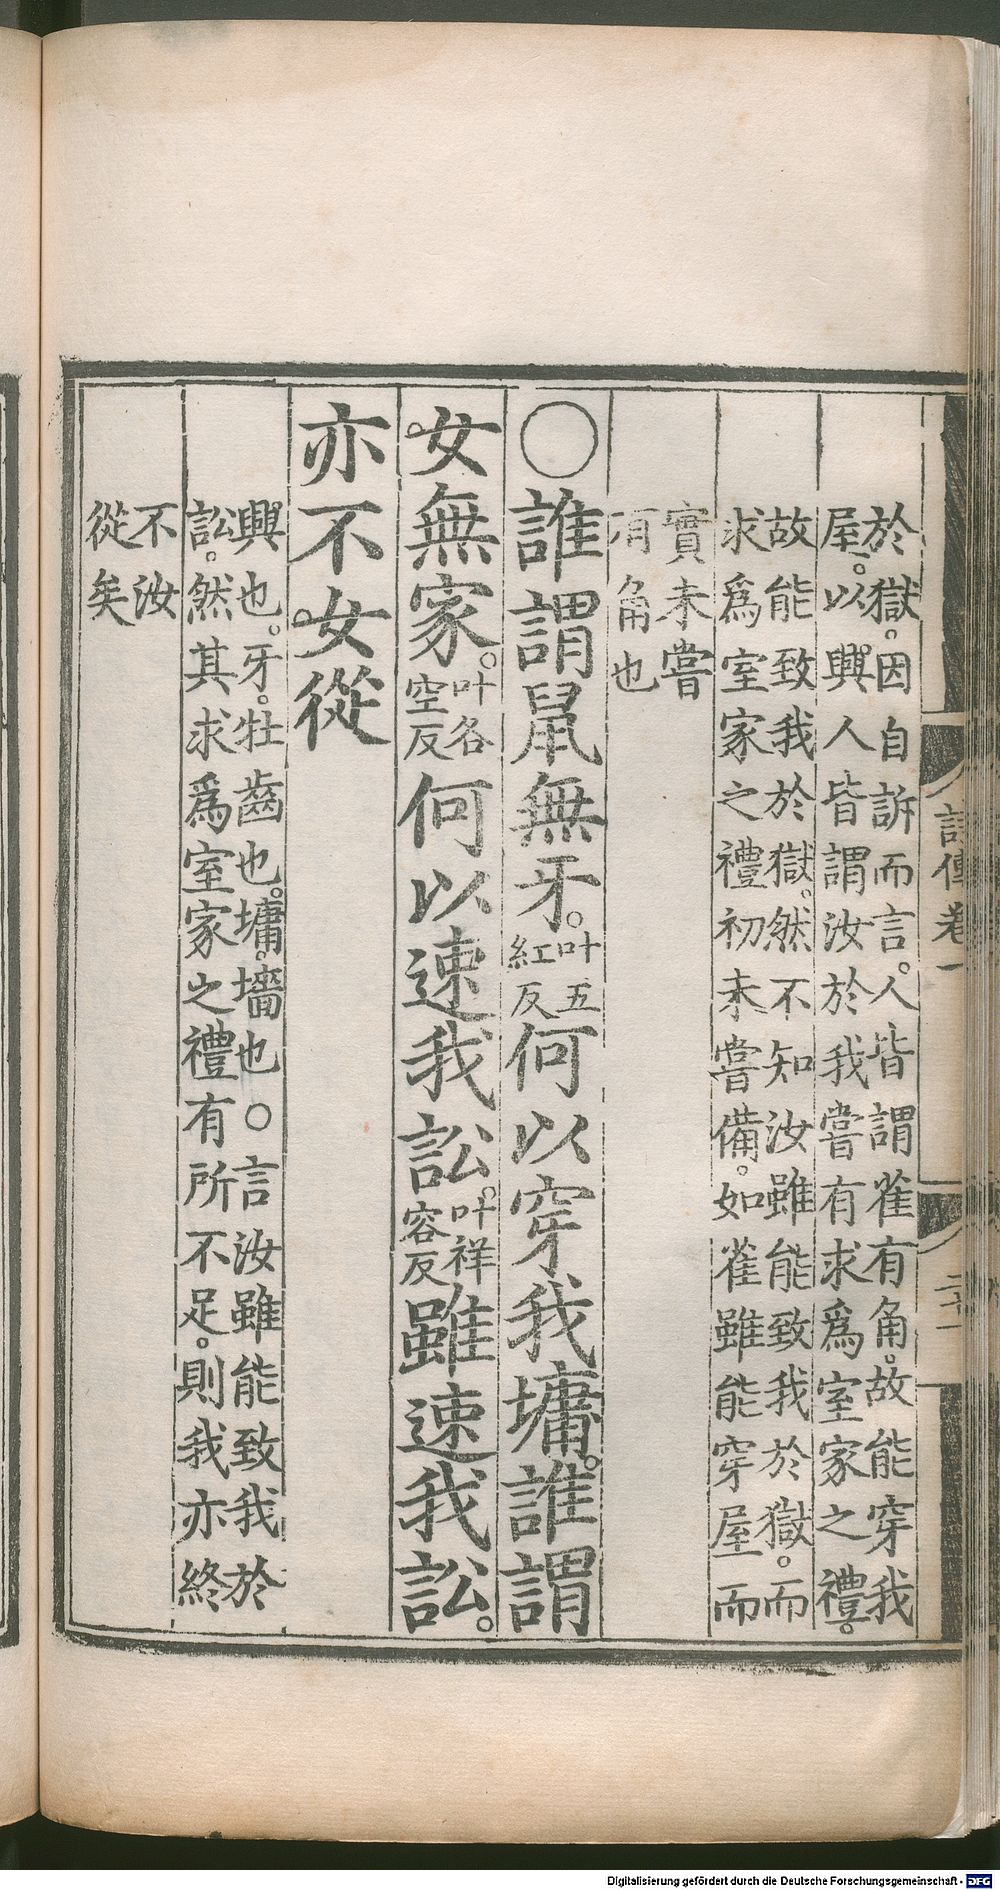 於獄。因自訴而言。人皆謂雀有角。故能穿我
屋。以興人皆謂汝於我嘗有求爲室家之禮。
故能致我於獄。然不知汝雖能致我於獄。而
求爲室家之禮初未嘗備。如雀雖能穿屋而
實未嘗
有角也
〇誰謂鼠無牙。叶五紅反何以穿我墉。誰謂
女無家。叶各空反何以速我訟。叶祥容反雖速我訟。
亦不女從
興也。牙。牡齒也。墉。墻也〇言汝雖能致我於
訟。然其求爲室家之禮有所不足。則我亦終
不汝
從矣
詩傳卷一
二十一
Digitalisierung gefördert durch die Deutsche Forschungsgemeinschaft - DFG